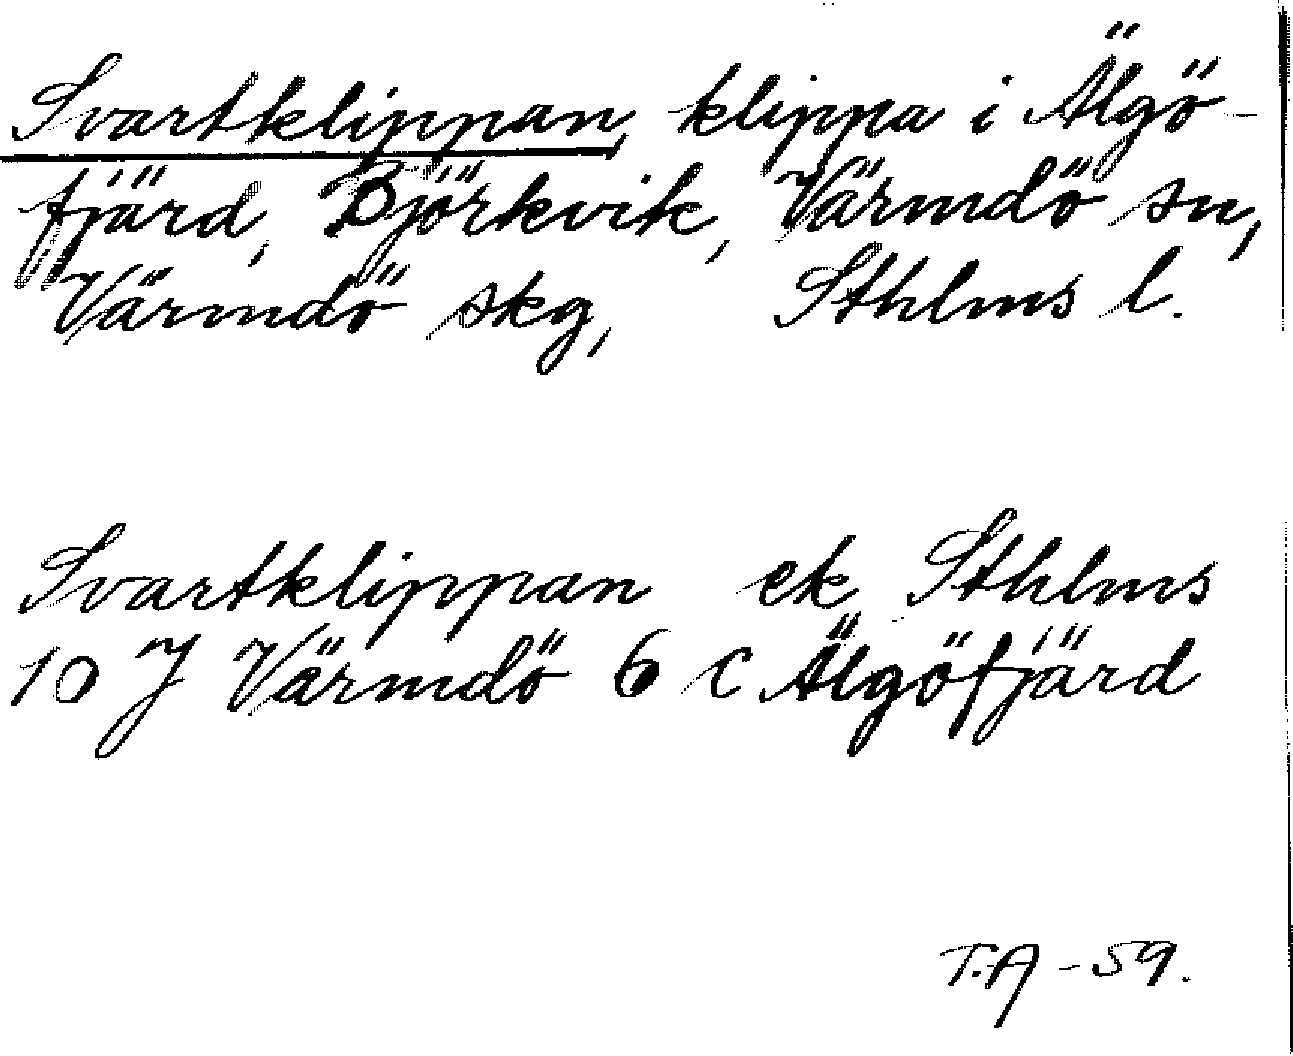 Svartklippan, klippa i Älgö-
fjärd, Björkvik, Värmdö sn,
Värmdö skg, Sthlms l.
Svartklippan ek Sthlms
10 J Värmdö 6 c Älgöfjärd
T.A - 59.